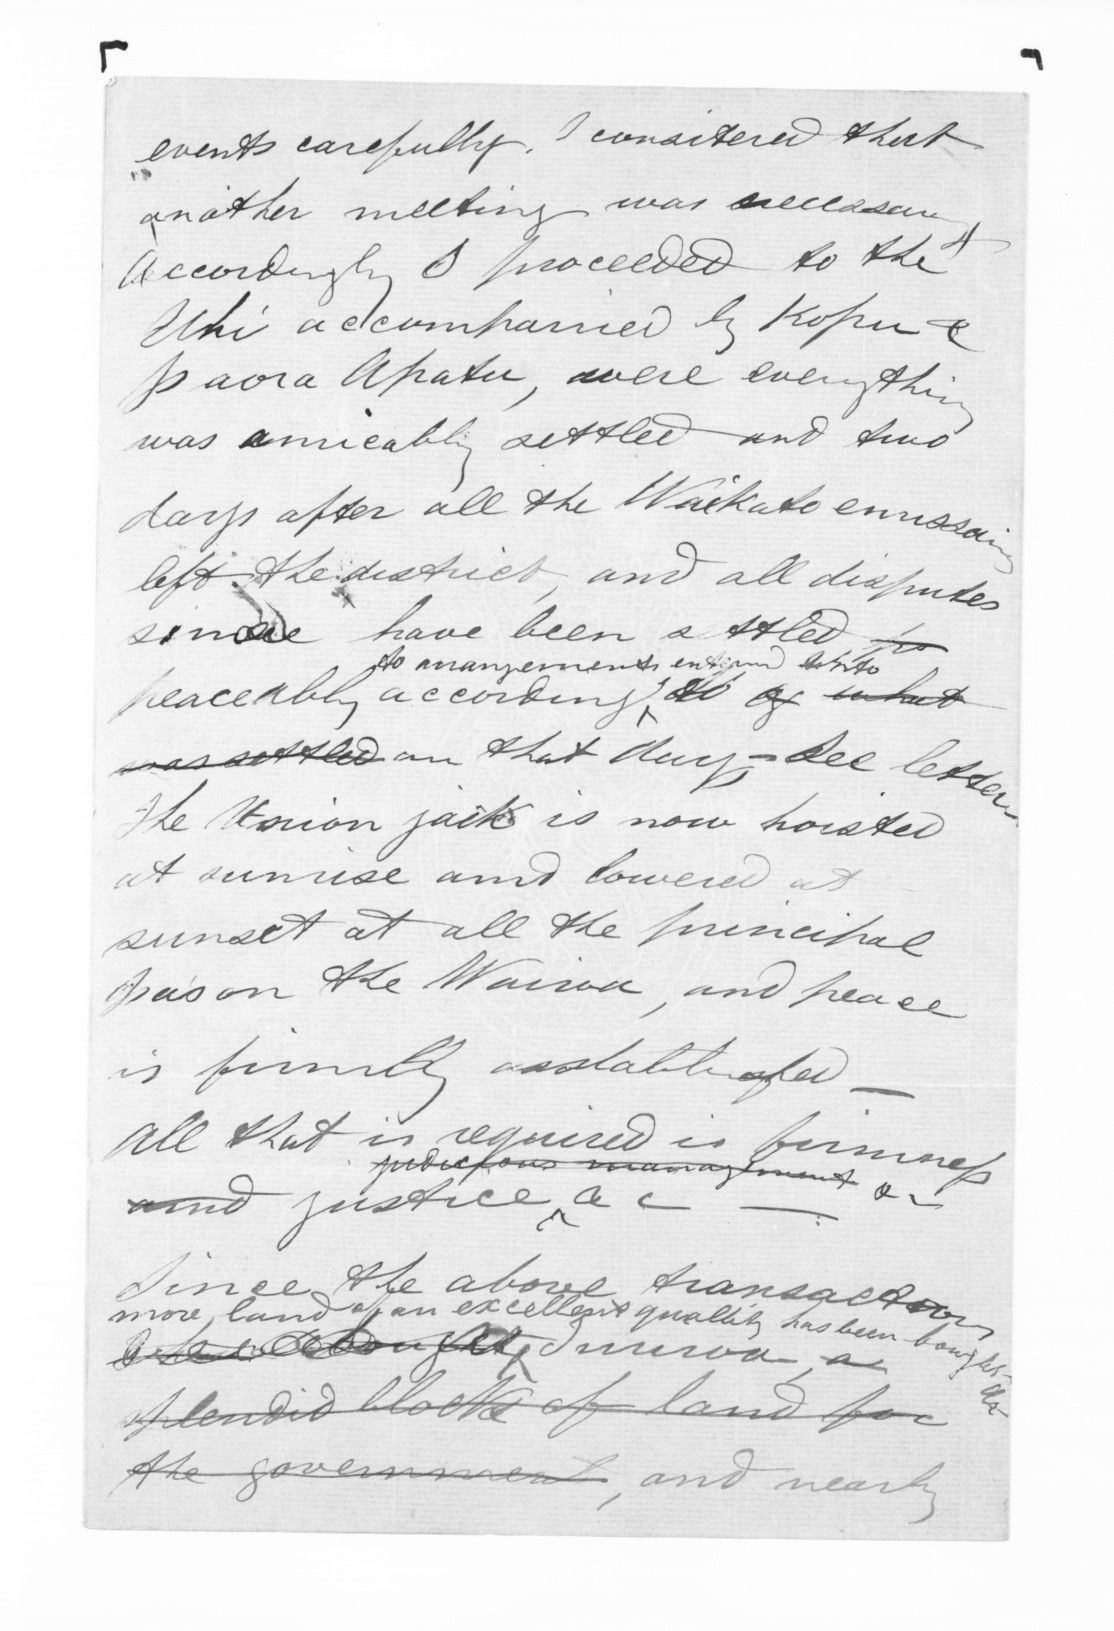 events carefully. I considered that
another meeting was necessary
Accordingly I proceeded to the
Uhi accompanied by Kopu &
paora Apatu, were everything
was amicably settled and two
days after all the Waikato
left the district, and all disputes
since have been settled
to arrangements
peaceably according to what
was settled on that day, - See letter
The Union jack is now hoisted
at sunrise and lowered at
sunset at all the principal
pa's on the Wairoa, and peace
is firmly
all that is required is firmness
judicious management &c
and justice &c —
Since the above transactions
more land of an excellent quality has been bought
at
bought, a
splendid block of land for
the government, and nearly